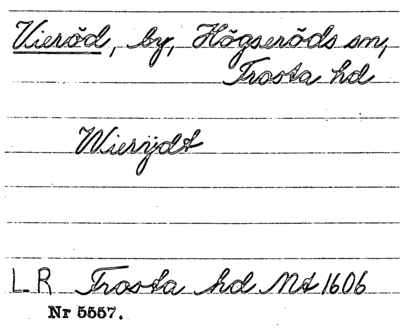 Vieröd, by, Högseröds sn,
Frosta hd
Wierijdt
L.R Frosta hd Mt 1606
Nr 5557.